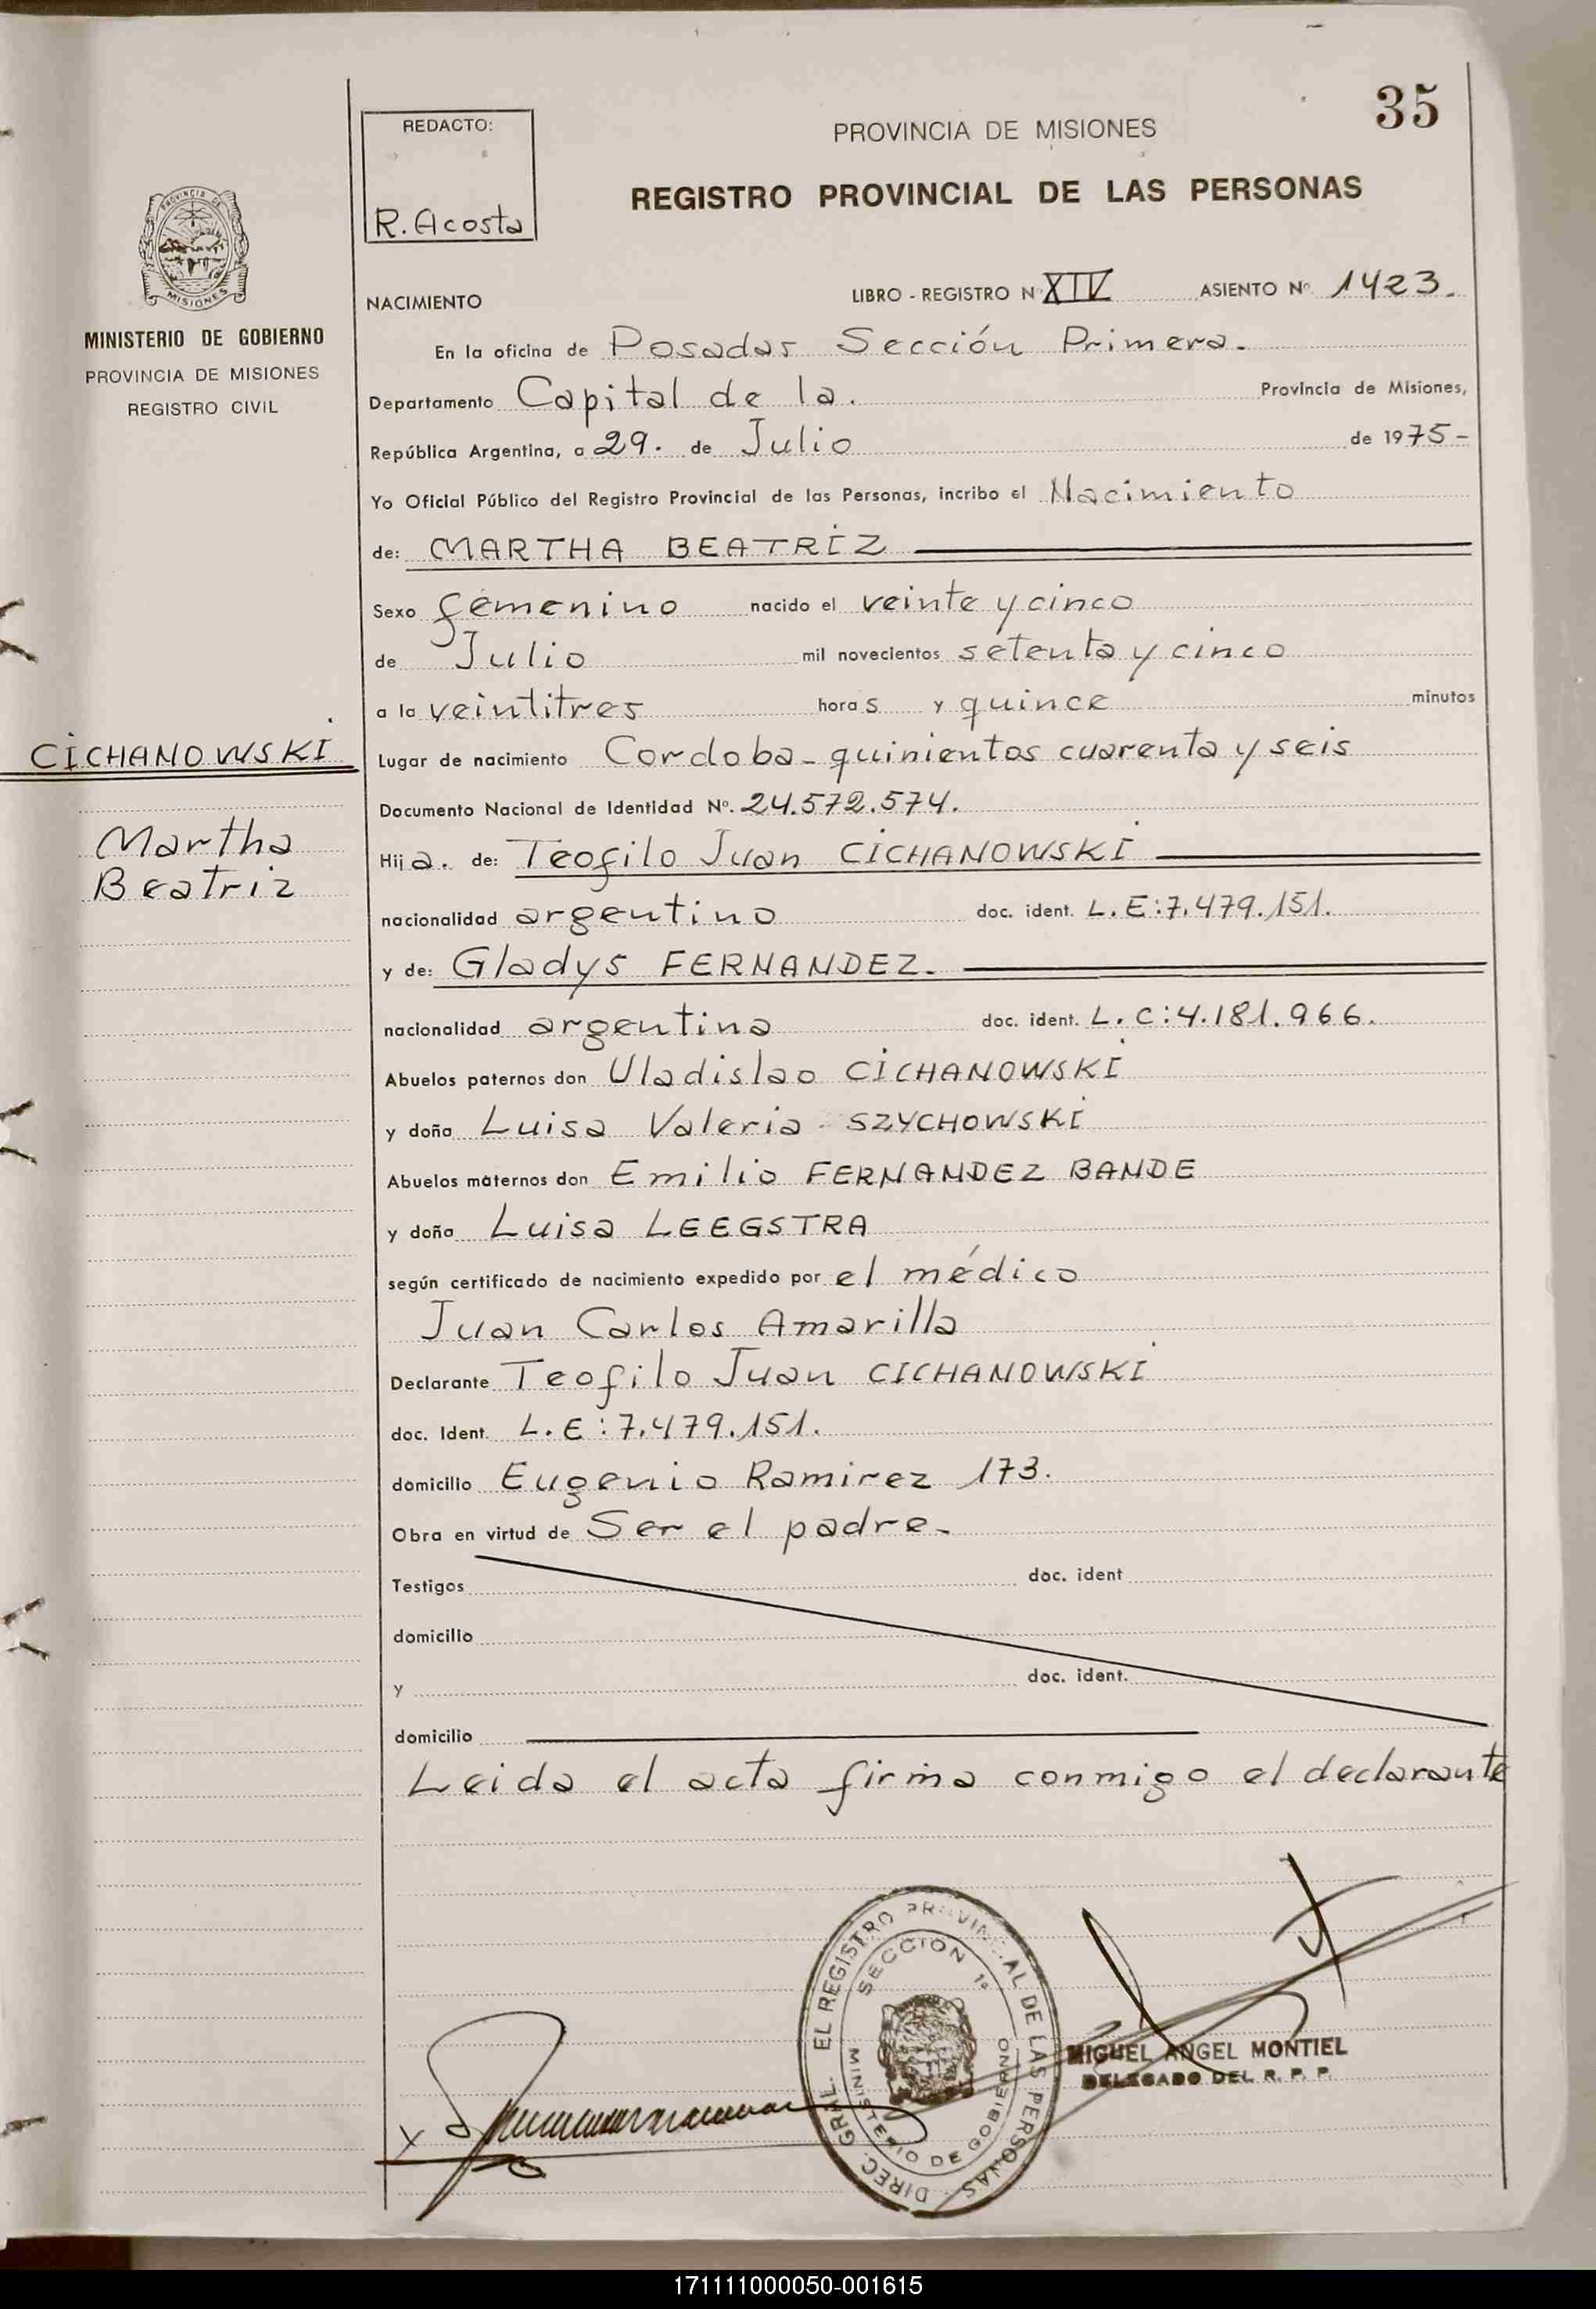 35
REDACTO:
R. Acosta
PROVINCIA DE MISIONES
REGISTRO PROVINCIAL DE LAS PERSONAS
PROVINCIA DE
MISIONES
MINISTERIO DE GOBIERNO
PROVINCIA DE MISIONES
REGISTRO CIVIL
NACIMIENTO
LIBRO - REGISTRO Nº XIV ASIENTO Nº 1423.
En la oficina de Posadas Sección Primera.
Departamento Capital de la. Provincia de Misiones,
República Argentina, a 29. de Julio de 1975-
Yo Oficial Público del Registro Provincial de las Personas, incribo el Nacimiento
de: MARTHA BEATRIZ
Sexo femenino nacido el veinte y cinco
de Julio mil novecientos setenta y cinco
a la veintitres horas y quince minutos
CICHANOWSKI
Martha
Beatriz
Lugar de nacimiento Cordoba - quinientos cuarenta y seis
Documento Nacional de Identidad Nº. 24.572.574.
Hija. de: Teofilo Juan CICHANOWSKI
nacionalidad argentino doc. ident. L.E:7.479.151.
y de: Gladys FERNANDEZ.
nacionalidad argentina doc. ident. L.C:4.181.966.
Abuelos paternos don Uladislao CICHANOWSKI
y doña Luisa Valeria SZYCHOWSKI
Abuelos maternos don Emilio FERNANDEZ BANDE
y doña Luisa LEEGSTRA
según certificado de nacimiento expedido por el médico
Juan Carlos Amarilla
Declarante Teofilo Juan CICHANOWSKI
doc. Ident. L.E:7.479.151.
domicilio Eugenio Ramirez 173.
Obra en virtud de Ser el padre.
Testigos doc. ident
domicilio
y doc. ident.
domicilio
Leida el acta firma conmigo el declarante
DIREC. GRAL. EL REGISTRO PROVINCIAL DE LAS PERSONAS
SECCION 1ª
MINISTERIO DE GOBIERNO
MIGUEL ANGEL MONTIEL
DELEGADO DEL R. P. P.
171111000050-001615